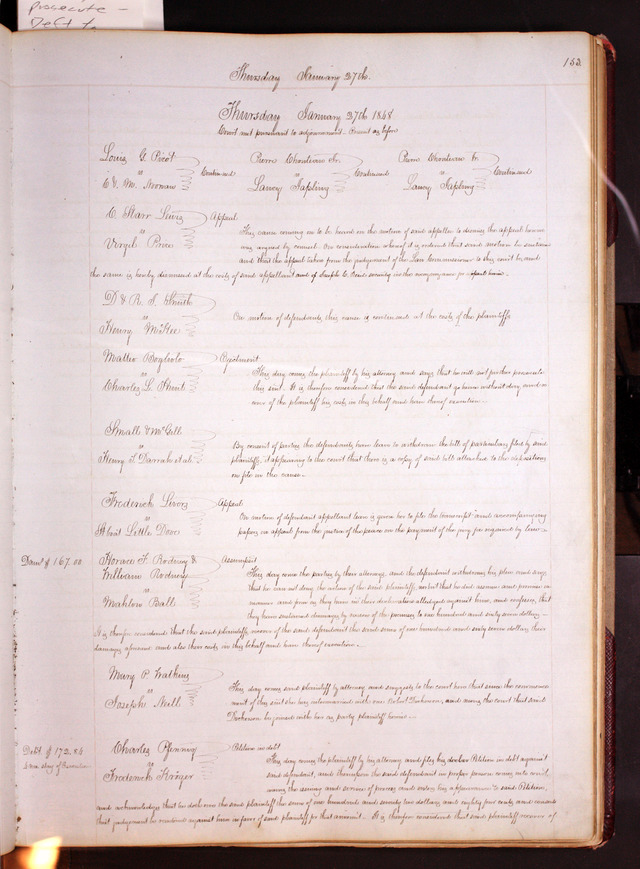 prosecute -
Debt to
152
Thursday January 27th.
Thursday January 27th 1848
Court met pursuant to adjournment. Present as before
Louis G. Picot
vs
C & M. Noonan
Continued
Pierre Chouteau Jr.
vs
Lancy Tapling
Continued
Pierre Chouteau Jr.
vs
Lancy Tapling
Continued
C. Starr Lewis
vs
Virgil Price
Appeal
This cause coming on to be heard on the motion of said appellee to dismiss the appeal herein
being argued by counsel. On consideration whereof it is ordered that said motion be sustained
and that the appeal taken from the judgment of the Law Commissioner to this court be and
the same is hereby dismissed at the costs of said appellant and of Joseph C. security in the recognizance for appeal herein.
D & R. S. Smith
vs
Henry McKee
On motion of defendants, this cause is continued at the costs of the plaintiffs
Walter
vs
Charles L. Hunt
Ejectment
This day comes the plaintiff by his attorney and says that he will not further prosecute
this suit. It is therefore considered that the said defendant go hence without day, and re-
cover of the plaintiff his costs in this behalf and have thereof execution.
Small & McGill
vs
Henry T. Darrah et al.
By consent of parties the defendants have leave to withdraw the bill of particulars filed by said
plaintiffs, it appearing to the court that there is a copy of said bill attached to the depositions
on file in the cause.
Frederick
vs
Abiel Little Davis
Appeal
On motion of defendant appellant leave is given her to file the transcript and accompanying
papers, on appeal from the justice of the peace on the payment of the jury fee required by law.
Dam'g $ 167.00
Horace F. Rodney &
William Rodney
vs
Mahlon Ball
Assumpsit
This day come the parties by their attorneys, and the defendant withdrawing his plea and says
that he can not deny the action of the said plaintiffs, nor but that he did assume and promise in
manner and form as they have in their declaration alleged against him, and confesses that
they have sustained damages by reason of the promises to one hundred and sixty seven dollars.
It is therefore considered that the said plaintiffs recover of the said defendant the said sum of one hundred and sixty seven dollars, their
damages aforesaid and also their costs in this behalf and have thereof execution.
Mary P. Watkins
vs
Joseph Neill
This day comes said plaintiff by attorney and suggests to the court here that since the commence-
ment of this suit she has intermarried with one Robert, and moves the court that said
be joined with her as party plaintiff herein.
Debt $ 172.84
& one stay of Execution
Charles Pfenning
vs
Frederick Kröger
Petition in debt
This day comes the plaintiff by his attorney and files his Petition in debt against
said defendant, and thereupon the said defendant in proper person comes into court,
waives the issuing and service of process and enters his appearance to said Petition,
and acknowledges that he doth owe the said plaintiff the sum of one hundred and seventy two dollars and eighty four cents and consents
that judgment be rendered against him in favor of said plaintiff for that amount. It is therefore considered that said plaintiff recover of